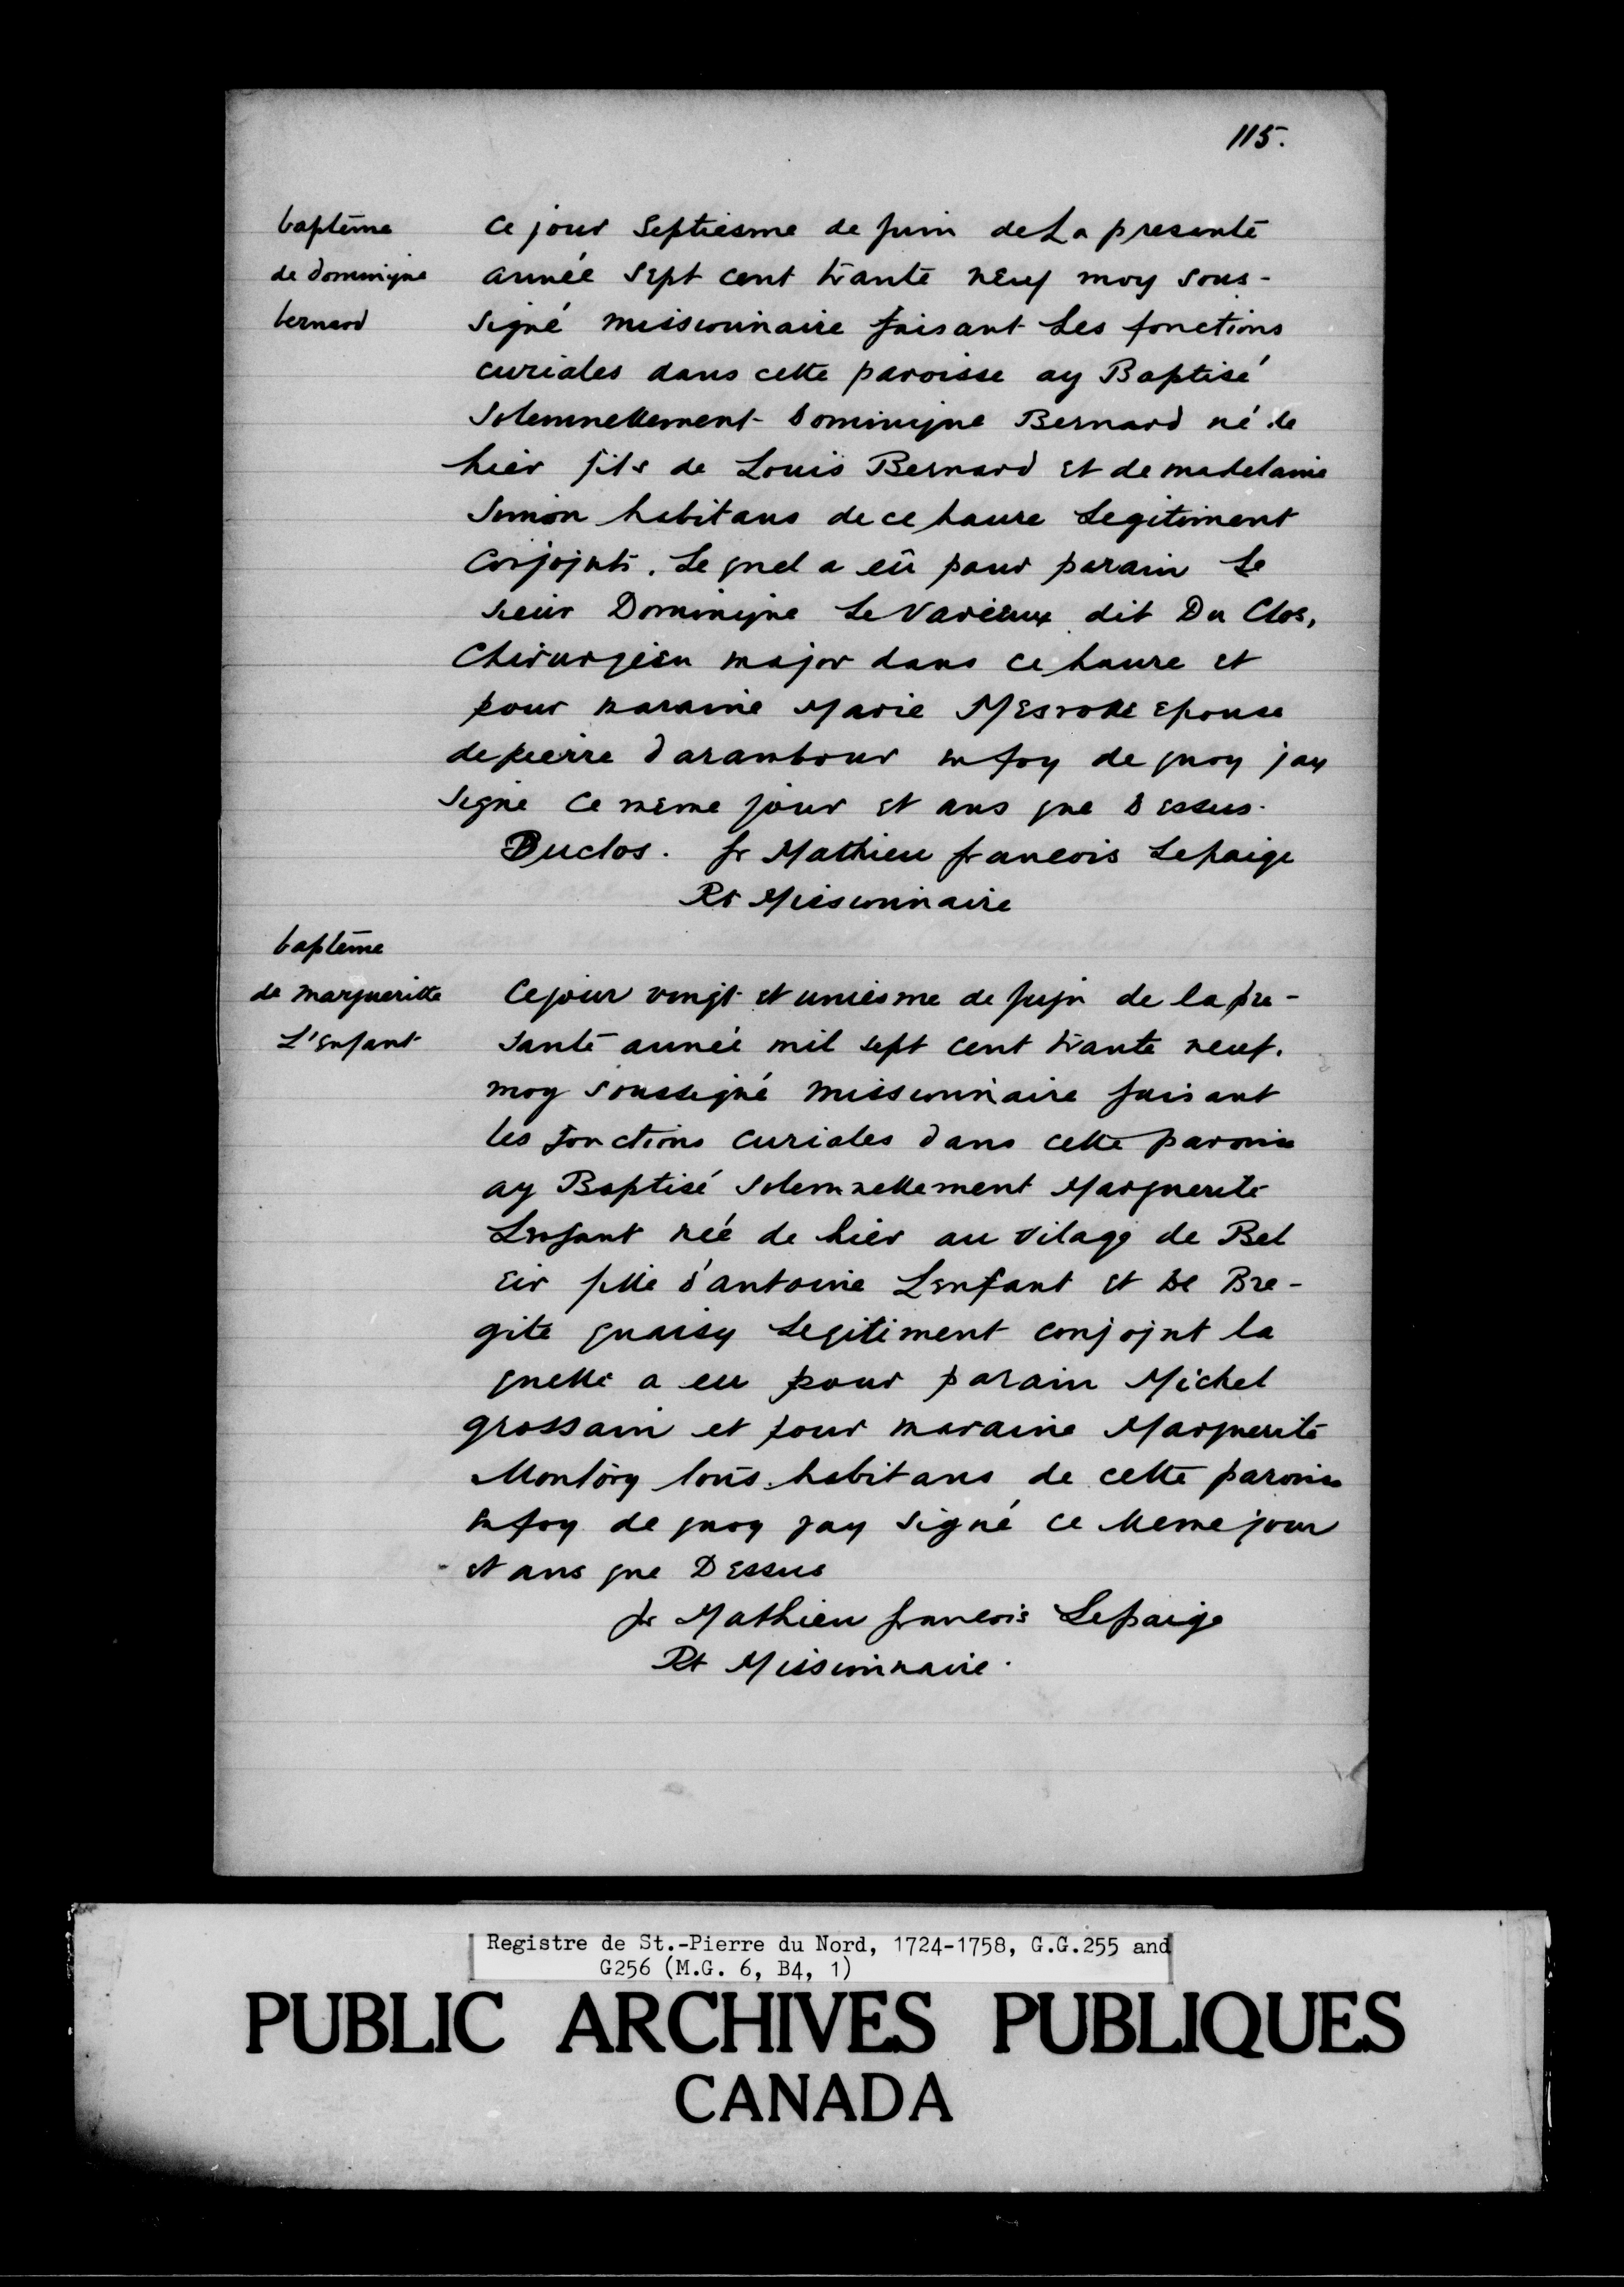 115.
baptême
de dominique
bernard
Ce jour Septiesme de juin de La presente
année sept cent trante neuf moy sous-
signé missionnaire faisant Les fonctions
curiales dans cette paroisse ay Baptisé
Solemnellement Dominique Bernard né de
hier fils de Louis Bernard et de madelaine
Simon habitans de ce haure Legitiment
Conjojnts. Le quel a eü pour parain Le
sieur Dominique Le Varieux dit Du Clos,
Chirurgien major dans ce haure et
pour maraine Marie Mesrolle epouse
de pierre darambour en foy de quoy jay
signe Ce meme jour et ans que Dessus.
Duclos. fr Mathieu francois Lepaige
Rt Missionnaire
baptême
de margueritte
L'enfant
Ce jour vingt et uniesme de jujn de la pre-
sante année mil sept cent trante neuf.
moy soussigné missionnaire faisant
les fonctions curiales dans cette paroisse
ay Baptisé solemnellement Marguerite
Lenfant née de hier au vilage de Bel
eir fille d'antoine Lenfant et de Bre-
gite quaisy Legitiment conjojnt la
quelle a eu pour parain Michel
grossain et pour maraine Marguerite
Montory tous habitans de cette paroisse
en foy de quoy jay signé ce meme jour
et ans que Dessus
fr Mathieu francois Lepaige
Rt Missionnaire.
Registre de St.-Pierre du Nord, 1724-1758, G.G.255 and
G256 (M.G. 6, B4, 1)
PUBLIC ARCHIVES PUBLIQUES
CANADA